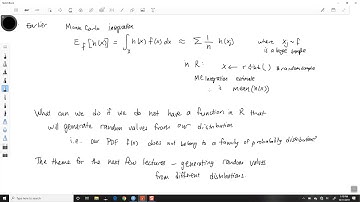 Earlier Monte Carlo integration
E_f[h(x)] = ∫_X h(x) f(x) dx ≈ Σ 1/n h(xj) where Xj ~ f
is a large sample
in R: x ← rdist( ) # random sample
MC integration estimate
is mean(h(x))
What can we do if we do not have a function in R that
will generate random values from our distribution
i.e. our PDF f(x) does not belong to a family of probability distributions?
The theme for the next few lectures - generating random values
from different distributions